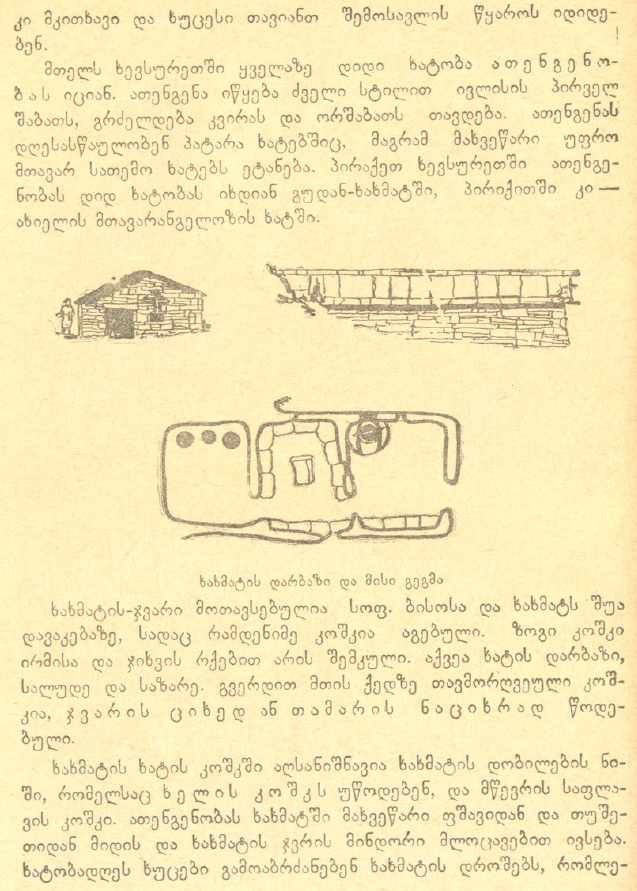 კი მკითხავი და ხუცესი თავიანთ შემოსავლის წყაროს იდიდე-
ბენ.
მთელს ხევსურეთში ყველაზე დიდი ხატობა ათენგენო-
ბას იციან. ათენგენა იწყება ძველი სტილით ივლისის პირველ
შაბათს, გრძელდება კვირას და ორშაბათს თავდება. ათენგენას
დღესასწაულობენ პატარა ხატებშიც, მაგრამ მახვეწარი უფრო
მთავარ სათემო ხატებს ეტანება. პირაქეთ ხევსურეთში ათენგე-
ნობას დიდ ხატობას იხდიან გუდან-ხახმატში, პირიქითში კი —
ახიელის მთავარანგელოზის ხატში.
ხახმატის დარბაზი და მისი გეგმა
ხახმატის-ჯვარი მოთავსებულია სოფ. ბისოსა და ხახმატს შუა
დავაკებაზე, სადაც რამდენიმე კოშკია აგებული. ზოგი კოშკი
ირმისა და ჯიხვის რქებით არის შემკული. აქვეა ხატის დარბაზი,
სალუდე და საზარე. გვერდით მთის ქედზე თავმორღვეული კოშ-
კია, ჯვარის ციხედ ან თამარის ნაციხრად წოდე-
ბული.
ხახმატის ხატის კოშკში აღსანიშნავია ხახმატის დობილების ნი-
ში, რომელსაც ხელის კოშკს უწოდებენ, და მწევრის საფლა-
ვის კოშკი. ათენგენობას ხახმატში მახვეწარი ფშავიდან და თუშე-
თიდან მიდის და ხახმატის ჯვრის მინდორი მლოცავებით ივსება.
ხატობადღეს ხუცები გამოაბრძანებენ ხახმატის დროშებს, რომლე-